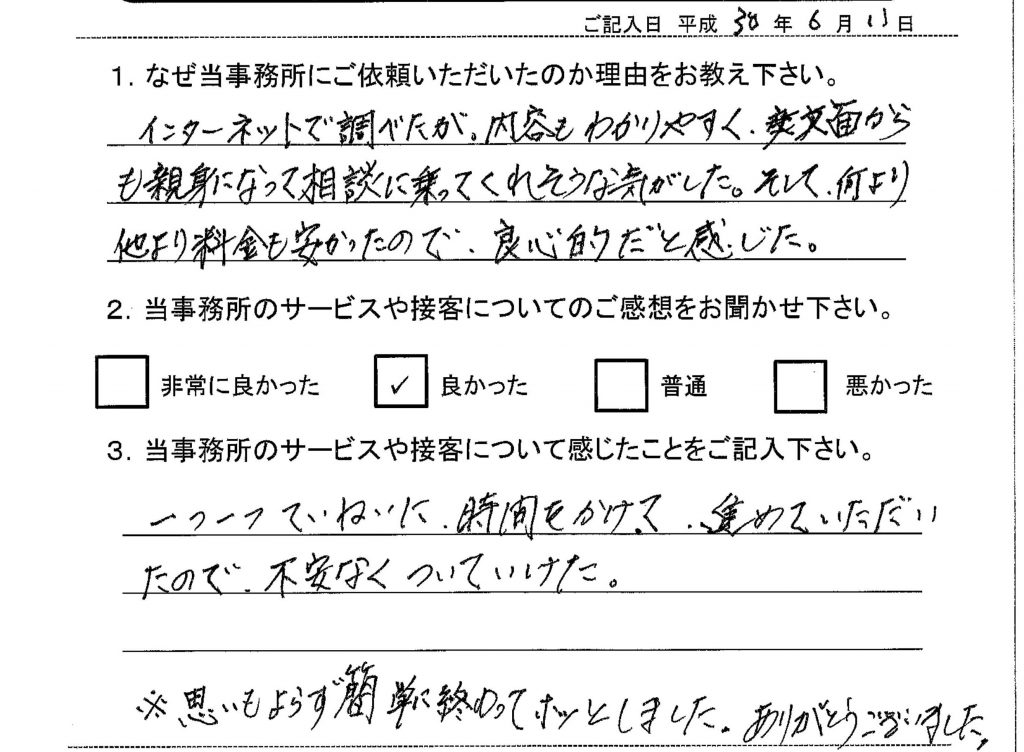 ご記入日 平成 30 年 6 月 13 日
1. なぜ当事務所にご依頼いただいたのか理由をお教え下さい。
インターネットで調べたが、内容もわかりやすく、文面から
も親身になって相談に乗ってくれそうな気がした。そして、何より
他より料金も安かったので、良心的だと感じた。
2. 当事務所のサービスや接客についてのご感想をお聞かせ下さい。
非常に良かった ✓ 良かった 普通 悪かった
3. 当事務所のサービスや接客について感じたことをご記入下さい。
一つ一つていねいに、時間をかけて、進めていただい
たので、不安なくついていけた。
※思いもよらず簡単に終わってホッとしました。ありがとうございました。